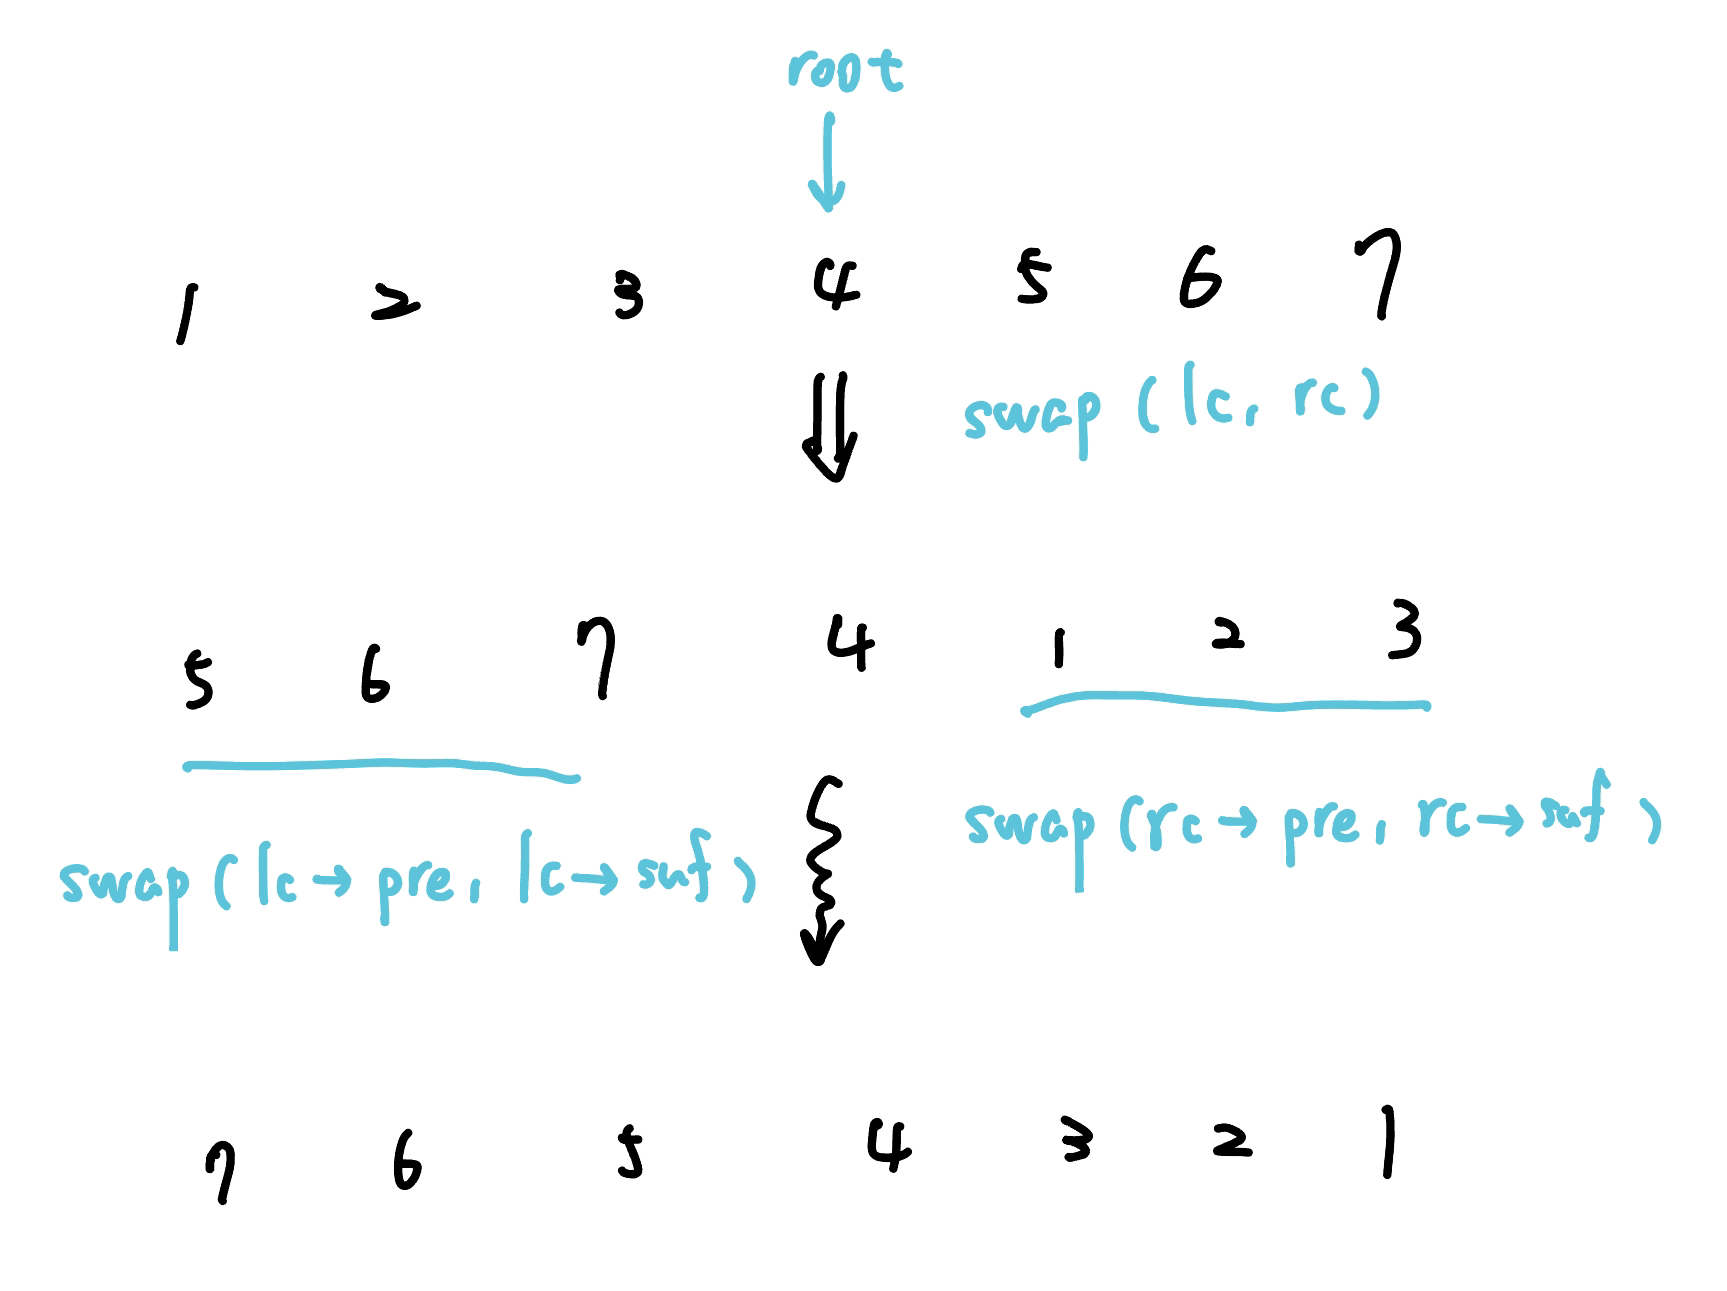 root
1 2 3 4 5 6 7
swap (lc, rc)
5 6 7 4 1 2 3
swap (rc → pre, rc → suf)
swap (lc → pre, lc → suf)
7 6 5 4 3 2 1